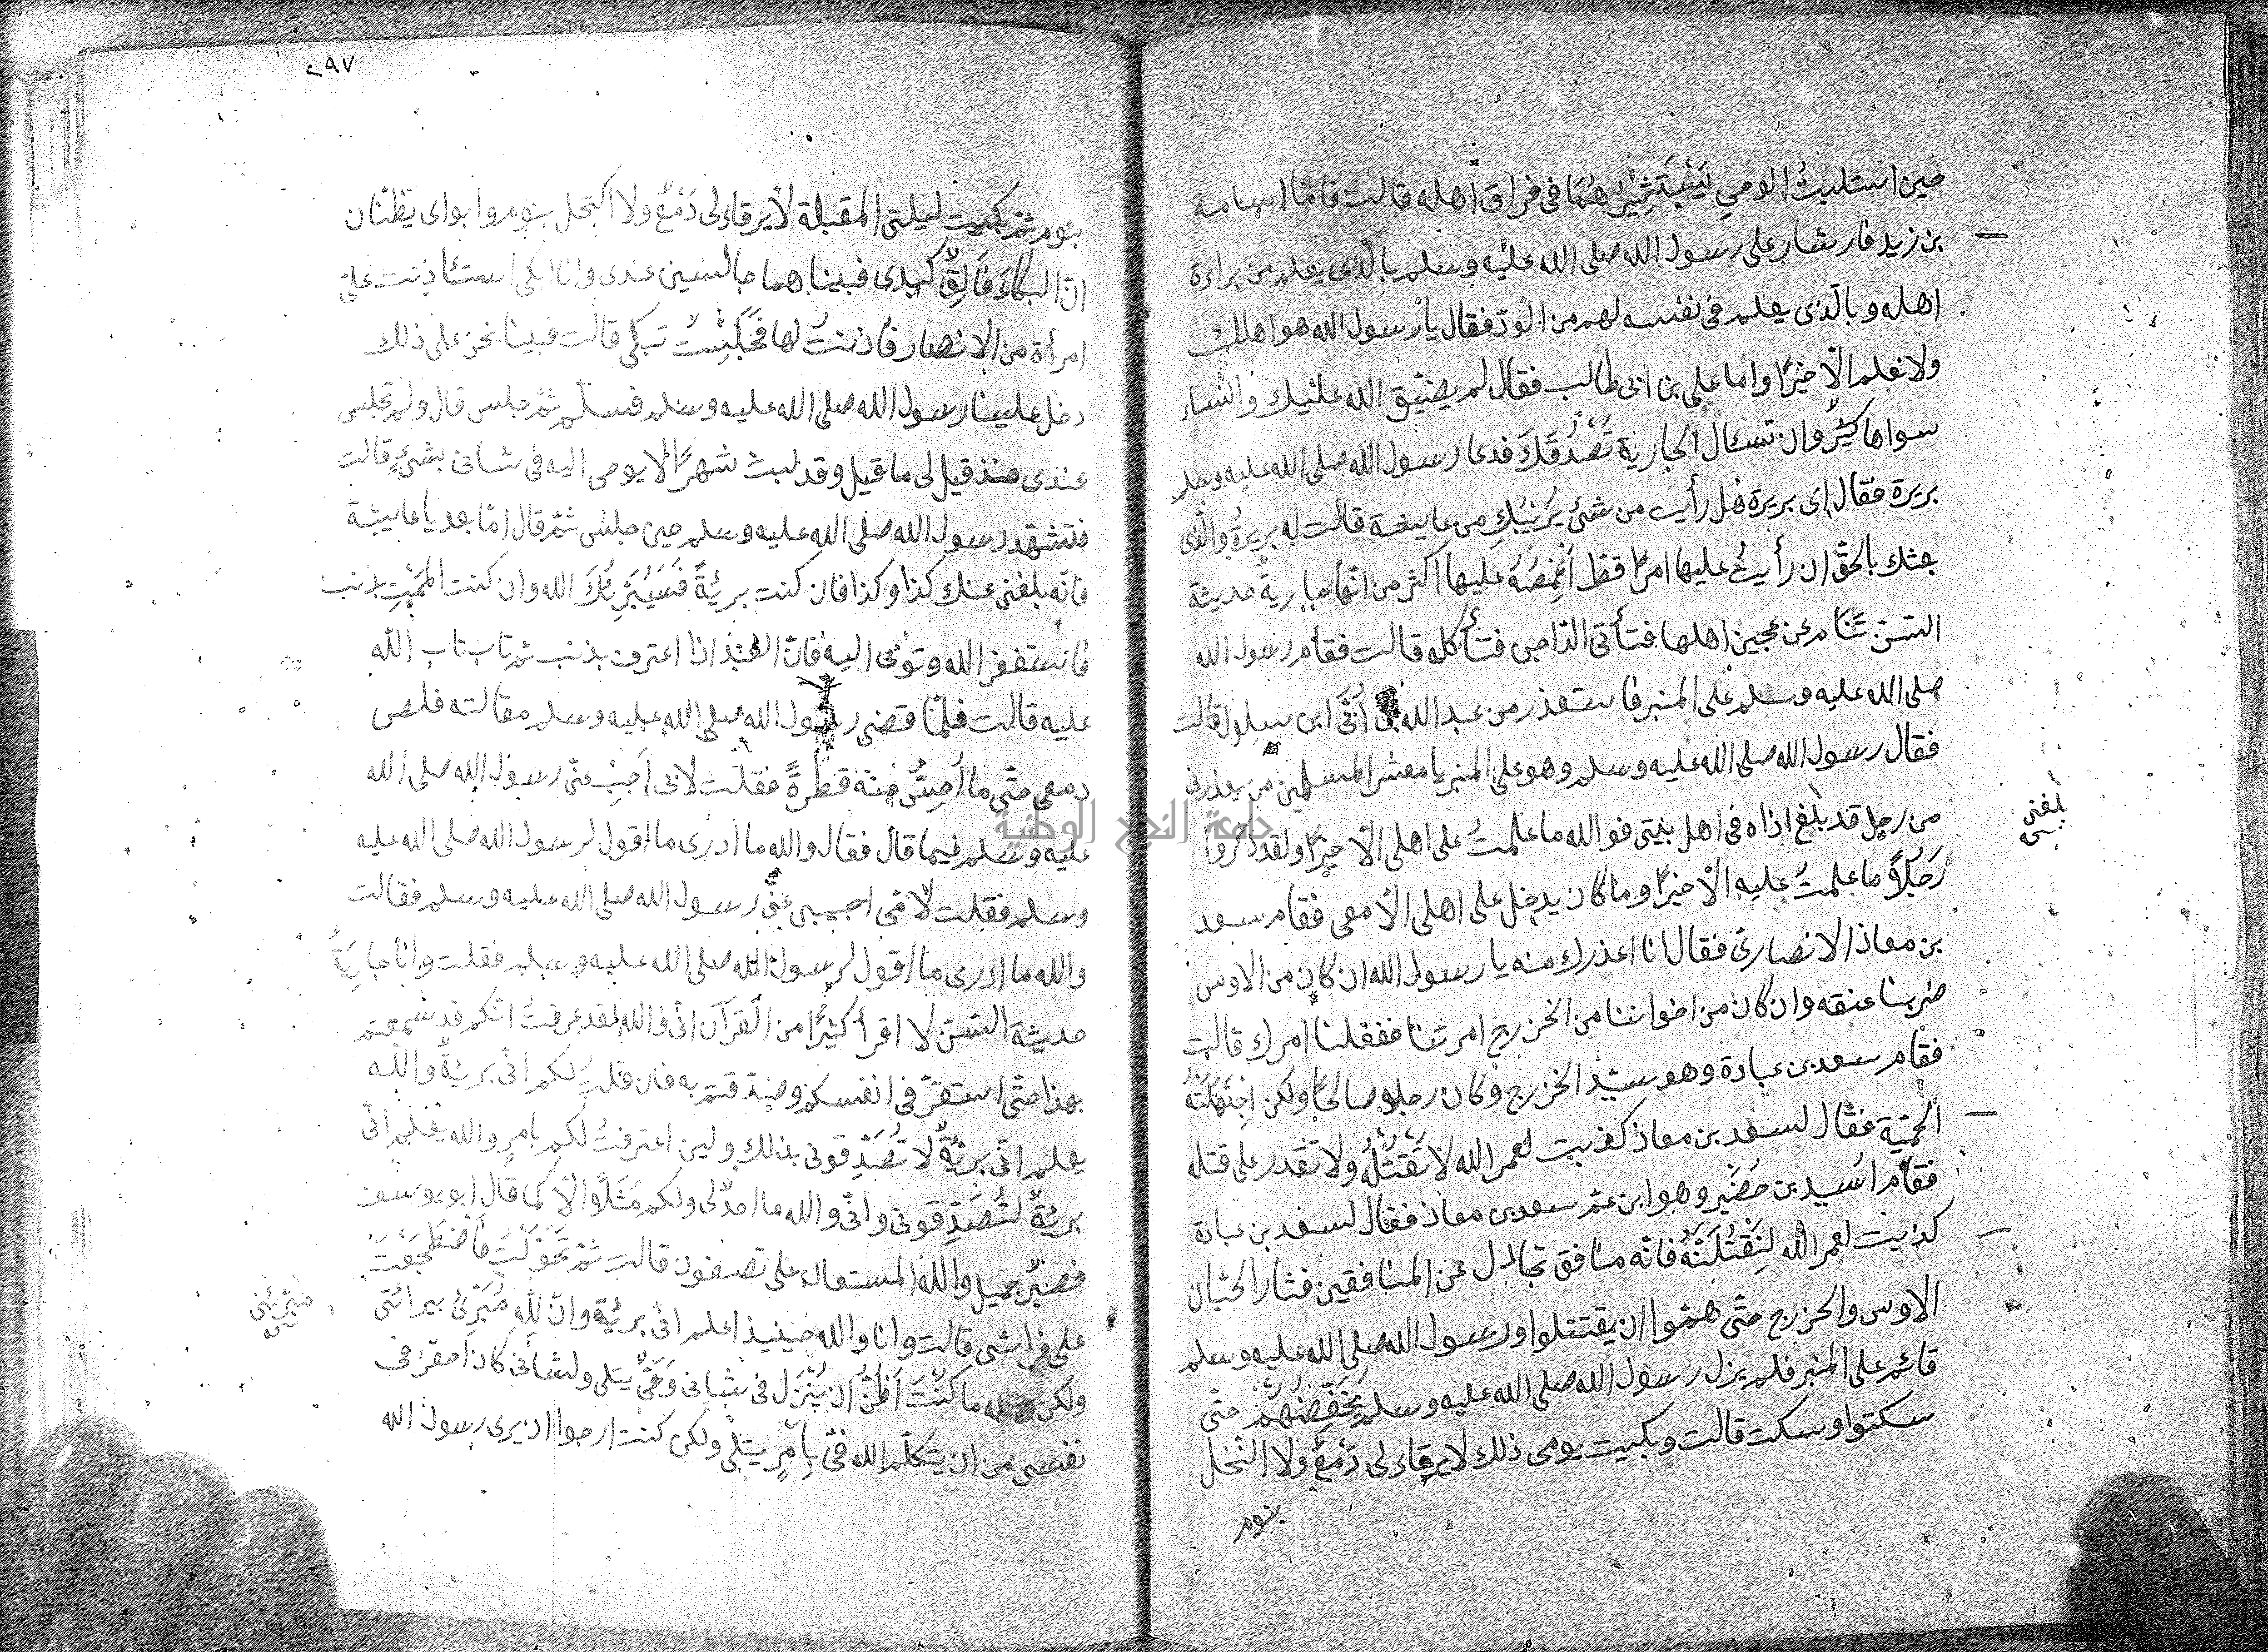 حين استلبث الوحي يَسْتَشِيرُهُمَا في فراق اهله قالت فامّا اسامة
بن زيد فاشار على رسول الله صلى الله عليه وسلم بالّذى يعلم من براءة
اهله وبالّذى يعلم فى نفسه لهم من الودّ فقال يا رسول الله هو اهلك
ولا نعلم الّا خيرًا واما على بن ابى طالب فقال لم يضيّق الله عليك والنساء
سواها كثيرٌ وان تسئال الجارية تَصْدُقْكَ فدعا رسول الله صلى الله عليه وسلم
بريرة فقال اى بريرة هل رأيت من شئ يُرِيْبُكِ من عايشة قالت له بريرةُ والّذى
بعثك بالحقّ ان رأيتُ عليها امرًا قط اَغْمِصُهُ عليها اكثر من انّها جاريةٌ حديثة
السّنّ تَنَام عن عجين اهلها فتأتى الدّاجن فتأكله قالت فقام رسول الله
صلى الله عليه وسلم على المنبر فاستعذر من عبد الله بن اُبَىّ ابن سلول قالت
فقال رسول الله صلى الله عليه وسلم وهو على المنبر يا معشر المسلمين من يعذرنى
من رجل قد بلغ اذاه فى اهل بيتى فوالله ما علمتُ على اهلى الّا خيرًا ولقد ذكروا
بلغنى
رَجُلًا ما علمتُ عليه الّا خيرًا وما كان يدخل على اهلى الّا معى فقام سعد
بن معاذ الانصارىّ فقال انا اعذرك منه يا رسول الله ان كان من الاوس
ضربنا عنقه وان كان من اخواننا من الخزرج امرتنا ففعلنا امرك قالت
فقام سعد بن عبادة وهو سيّد الخزرج وكان رجلا صالحًا ولكن اِحْتَمَلَتْهُ
الحميّة فقال لسعد بن معاذ كذبت لعمر الله لا تَقْتُلُهُ ولا تقدر على قتله
فقام اُسيد بن حضير وهو ابن عمّ سعد بن معاذ فقال لسعد بن عبادة
كذبت لعمر الله لَنَقْتُلَنَّهُ فانّه منافق تجادل عن المنافقين فثار الحيّان
الاوس والخزرج حتّى همّوا ان يقتتلوا ورسول الله صلى الله عليه وسلم
قائم على المنبر فلم يزل رسول الله صلى الله عليه وسلم يُخَفِّضُهُمْ حتّى
سكتوا وسكت قالت وبكيت يومى ذلك لا يرقاء لى دَمْعٌ ولا اكتحل
بنوم
٢٩٧
بنوم ثمّ بكيت ليلتى المقبلة لا يرقاء لى دَمْعٌ ولا اكتحل بنوم وابواى يظنّان
انّ البكاءَ فَالِقٌ كبدى فبينا هما جالسين عندى وانا ابكى استئاذنت علىّ
امرأة من الانصار فأذنتُ لها فَجَلَسَتْ تبكى قالت فبينا نحن على ذلك
دخل علينا رسول الله صلى الله عليه وسلم فسلّم ثمّ جلس قال ولم تجلس
عندى منذ قيل لى ما قيل وقد لبث شهرًا لا يوحى اليه فى شانى بشئٍ قالت
فتشهد رسول الله صلى الله عليه وسلم حين جلس ثمّ قال امّا بعد يا عايشة
فانّه بلغنى عنك كذا وكذا فان كنت بريئةً فَسَيُبَرِّئُكَ الله وان كنت الممتِ بذنب
فاستغفر الله وتوبى اليه فانّ العبْدَ اذا اعترف بذنب ثم تاب تاب الله
عليه قالت فلمّا قضى رسول الله صلى الله عليه وسلم مقالته قلص
دمعى حتّى ما اُحِسُّ منه قطرةً فقلت لابى اَجِبْ عنّى رسول الله صلى الله
عليه وسلم فيما قال فقال والله ما ادرى ما اقول لرسول الله صلى الله عليه
وسلم فقلت لامّى اجيبى عنّى رسول الله صلى الله عليه وسلم فقالت
والله ما ادرى ما اقول لرسول الله صلى الله عليه وسلم فقلت وانا جاريَةٌ
حديثة السّنّ لا اقرأ كثيرًا من القرآن انّى والله لقد عرفتُ انّكم قد سمعتم
بهذا حتّى استقرّ فى انفسكم وصدّقتم به فان قلت لكم انّى بريئةٌ والله
يعلم انّى بريئةٌ لا تُصَدِّقونى بذلك ولين اعترفتُ لكم بامرٍ والله يعلم انّى
بريئةٌ لتُصَدِّقونى وانّى والله ما اجدُ لى ولكم مَثَلًا الّا كما قال ابو يوسف
فصبرٌ جميل والله المستعان على تصفون قالت ثمّ تَحَوَّلْتُ فاضْطَجَعْتُ
على فراشى قالت وانا والله حينيذ اعلم انّى بريئة وانّ للهِ مُبَرِّئُ ببرائتى
مبرّئنى
ولكن والله ما كنتَ اَظُنُّ ان يُنْزَل فى شانى وَحْىٌ يتلى ولشأنى كان احقر فى
نفسى من ان يتكلّم الله فىّ بِاَمْرٍ يتلى ولكن كنت ارجوا ان يرى رسول الله
جامعة النجاح الوطنية